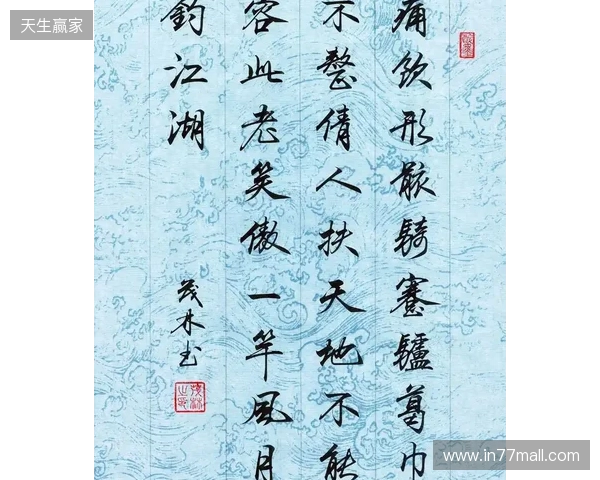 天生赢家
痛飲形骸騎蹇驢葛巾
不整倩人扶天地不能
容此老笑傲一竿風月
釣江湖
茂林书
www.in77mall.com